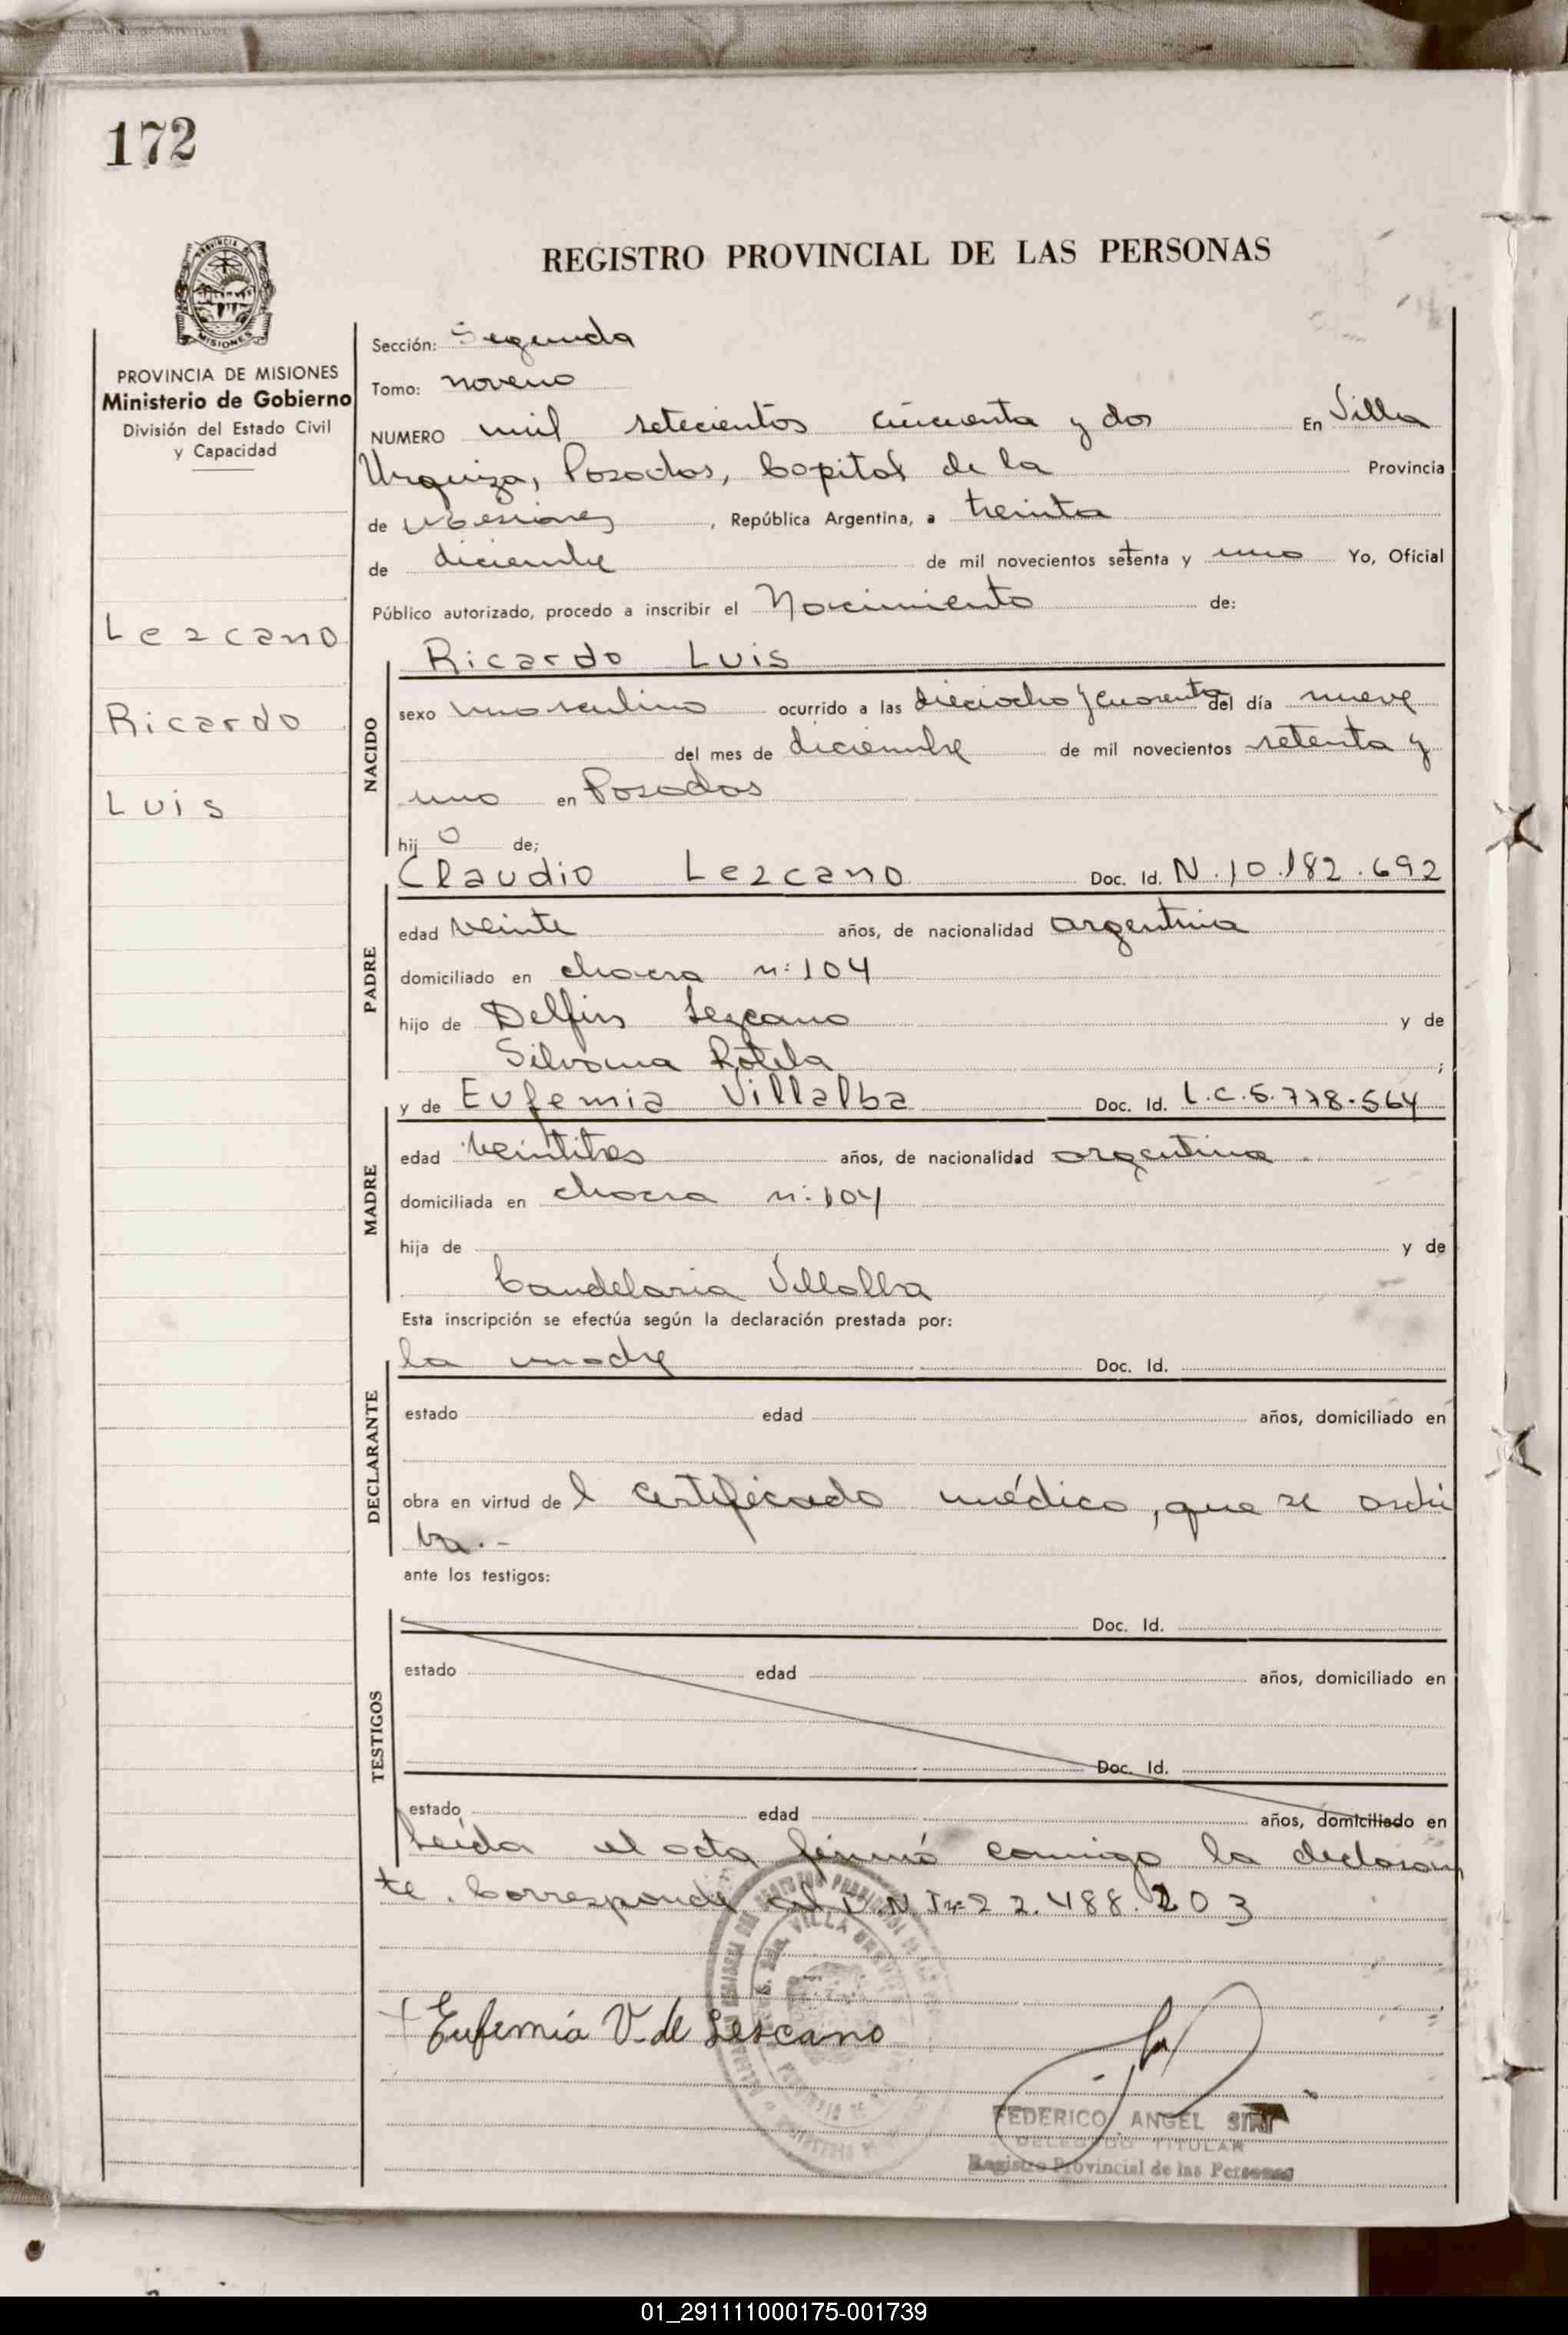 172
REGISTRO PROVINCIAL DE LAS PERSONAS
PROVINCIA DE MISIONES
Ministerio de Gobierno
División del Estado Civil
y Capacidad
Lezcano
Ricardo
Luis
Sección: Segunda
Tomo: noveno
NUMERO mil setecientos cincuenta y dos En Villa
Urquiza, Posadas, Capital de la Provincia
de Misiones, República Argentina, a treinta
de diciembre de mil novecientos setenta y uno Yo, Oficial
Público autorizado, procedo a inscribir el Nacimiento de:
Ricardo Luis
NACIDO
sexo masculino ocurrido a las dieciocho y cuarenta del día nueve
del mes de diciembre de mil novecientos setenta y
uno en Posadas
hij o de;
Claudio Lezcano Doc. Id. N. 10.182.692
PADRE
edad veinte años, de nacionalidad argentina
domiciliado en chacra n: 104
hijo de Delfin Lezcano y de
Silvana Rotela ;
y de Eufemia Villalba Doc. Id. L.C. 5.778.564
MADRE
edad veintitres años, de nacionalidad argentina
domiciliada en chacra n: 104
hija de y de
Candelaria Villalba
Esta inscripción se efectúa según la declaración prestada por:
la madre Doc. Id.
DECLARANTE
estado edad años, domiciliado en
obra en virtud de l certificado médico, que se archi
va.-
ante los testigos:
Doc. Id.
TESTIGOS
estado edad años, domiciliado en
Doc. Id.
estado edad años, domiciliado en
Leída el acta firmó conmigo la declaran
te. Corresponde al D.N.I. 22.488.203
Eufemia V. de Lescano
FEDERICO ANGEL
DELEGADO TITULAR
Registro Provincial de las Personas
01_291111000175-001739